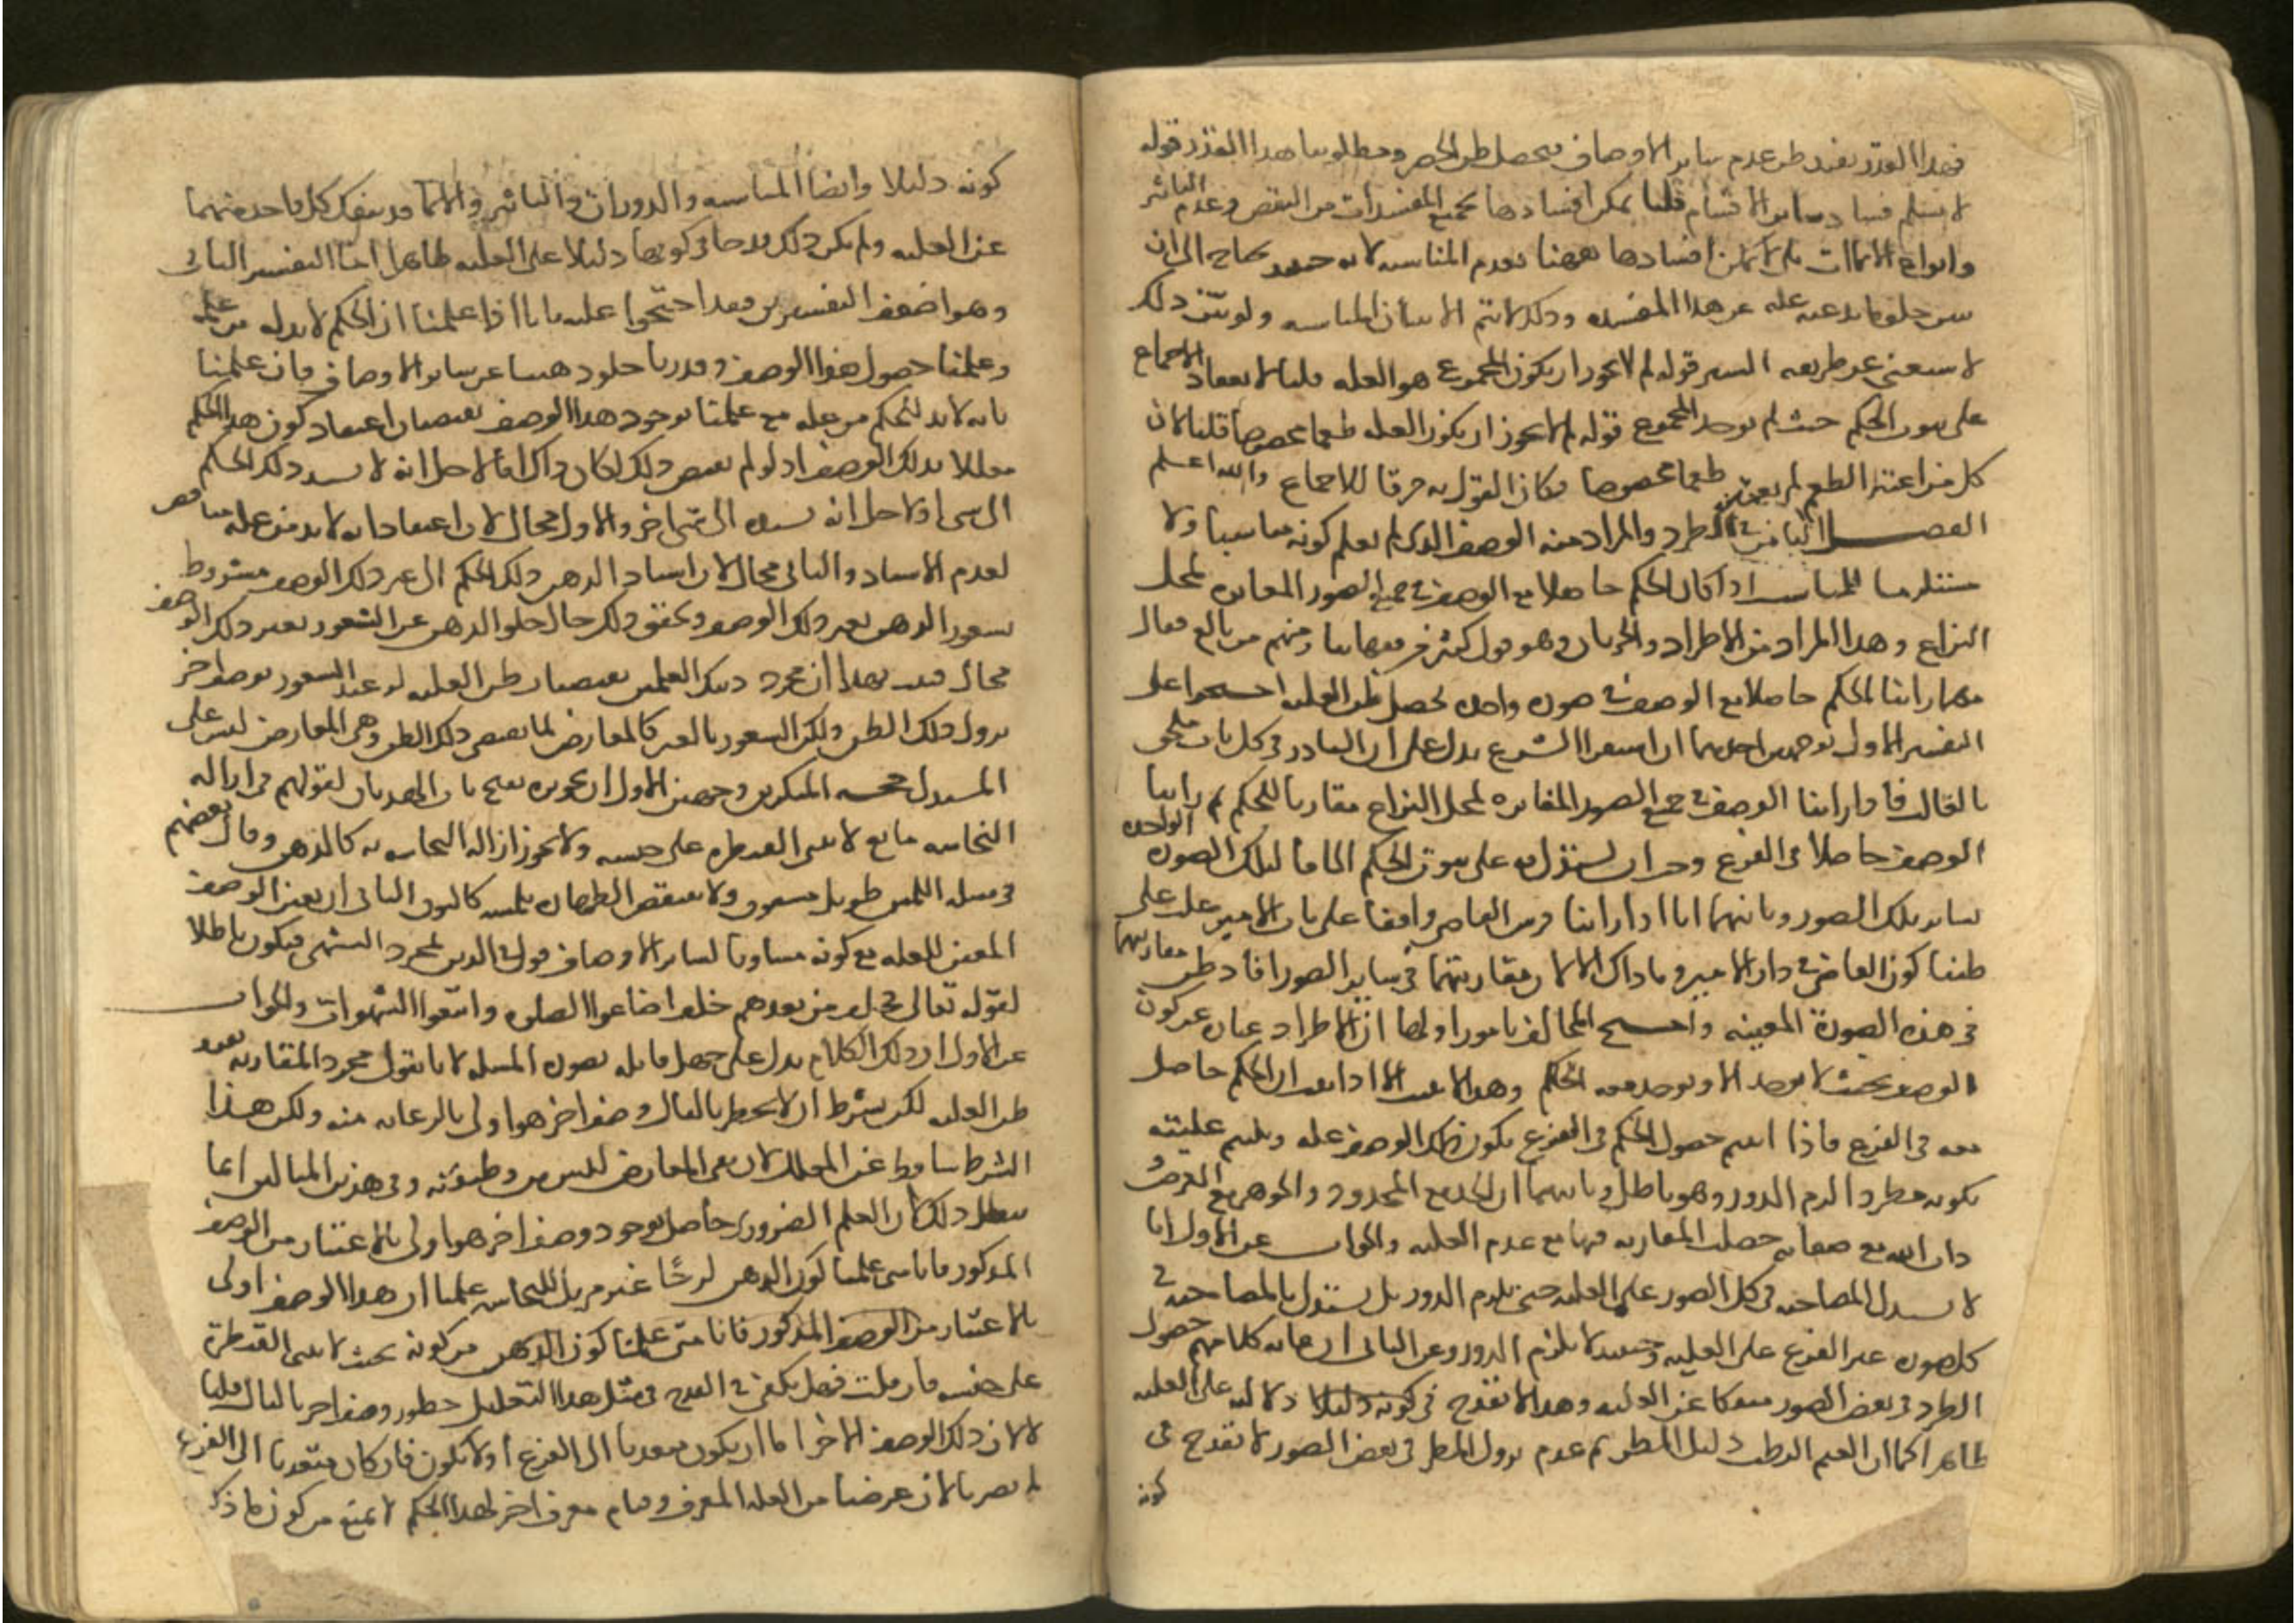 فهذا القدر يفيد ظن عدم سائر الأوصاف فيحصل ظن الحصر ومطلوبنا هذا القدر قوله
لا نسلم فساد سائر الأقسام قلنا يمكن افسادها بجميع المفسدات من النقض وعدم التاثير
وانواع الايماات بلى لا يمكن افسادها ههنا بعدم المناسبه لانه حينئذ يحتاج الى ان
يبين خلو ما يدعيه علة عن هذا المفسد وذلك لا يتم الا ببيان المناسبه ولو بين ذلك
لاستغنى عن طريقه السبر قوله لم لا يجوز ان يكون المجموع هو العله قلنا لانعقاد الاجماع
على ثبوت الحكم حيث لم يوجد المجموع قوله لم لا يجوز ان يكون العله طعما مخصوصا قلنا لان
كل من اعتبر الطعم لم يعتبر طعما مخصوصا فكان القول به خرقا للاجماع والله اعلم
الفصل الثامن في الطرد والمراد منه الوصف الذي لم يعلم كونه مناسبا ولا
مستلزما للمناسب اذا كان الحكم حاصلا مع الوصف في جميع الصور المغايره لمحل
النزاع وهذا المراد من الاطراد والجريان وهو قول كثير من فقهائنا ومنهم من بالغ فقال
مهما راينا الحكم حاصلا مع الوصف في صوره واحده يحصل ظن العليه احتجوا على
التفسير الاول بوجهين احدهما ان استقراا الشرع يدل على ان النادر في كل باب ملحق
بالغالب فاذا راينا الوصف في جميع الصور المغايره لمحل النزاع مقارنا للحكم ثم راينا
الوصف حاصلا في الفرع وجب ان يستدل به على ثبوت الحكم الحاقا لتلك الصوره الواحده
بسائر تلك الصور وثانيهما انا اذا راينا فرس القاضي واقفا على باب الامير غلب على
ظننا كون القاضي في دار الامير وما ذاك الا لان مقارنتهما في سائر الصور افاد ظن مقارنتهما
في هذه الصورة المعينه واحتج المخالف بامور اولها ان الاطراد عباره عن كون
الوصف بحيث لا يوجد الا ويوجد معه الحكم وهذا لا يثبت الا اذا ثبت ان الحكم حاصل
معه في الفرع فاذا اثبتم حصول الحكم في الفرع بكون ذلك الوصف عله وبينتم عليته
بكونه مطردا لزم الدور وهو باطل وثانيهما ان الحد مع المحدود والجوهر مع العرض و
ذات الله مع صفاته حصلت المقارنه فيها مع عدم العليه والجواب عن الاول انا
لا نستدل بالمصاحبه في كل الصور على العليه حتى يلزم الدور بل نستدل بالمصاحبه في
كل صوره غير الفرع على العليه وحينئذ لا يلزم الدور وعن الثاني ان غايه كلامهم حصول
الطرد في بعض الصور منفكا عن العليه وهذا لا يقدح في كونه دليلا دلاله على العليه
ظاهرا كما ان الغيم الرطب دليل المطر ثم عدم نزول المطر في بعض الصور لا يقدح في
كونه
كونه دليلا وايضا المناسبه والدوران والتاثير والايماء قد ينفك كل واحد منهما
عن العليه ولم يكن ذلك قدحا في كونها دليلا على العليه ظاهرا اما التفسير الثاني
وهو اضعف التفسيرين فقد احتجوا عليه بانا اذا علمنا ان الحكم لا بد له من عله
وعلمنا حصول هذا الوصف وقدرنا خلو ذهننا عن سائر الاوصاف فان علمنا
بانه لا بد للحكم من عله مع علمنا بوجود هذا الوصف يقتضيان اعتقاد كون هذا الحكم
معللا بذلك الوصف اذ لو لم يقتض ذلك لكان ذاك اما لاجل انه لا يسند ذلك الحكم
الى شي او لاجل انه يسنده الى شي اخر والاول محال لان اعتقاد انه لا بد من عله مناقض
لعدم الاسناد والثاني محال لان اسناد الذهن ذلك الحكم الى غير ذلك الوصف مشروط
بشعور الذهن بغير ذلك الوصف وتحقق ذلك حال خلو الذهن عن الشعور بغير ذلك الوصف
محال فثبت بهذا ان مجرد ذينك العلمين يقتضيان ظن العليه لو عند الشعور بوصف اخر
يزول ذلك الظن ولكن الشعور بالغير كالمعارض لما يقتضي ذلك الظن ونفي المعارض ليس على
المستدل حجه المنكرين وجهين الاول ان تجويزه يفتح باب الهذيان لقولهم في ازاله
النجاسه مايع لا تبنى القنطره على جنسه ولا يجوز ازاله النجاسه به كالدهن وقال بعضهم
في مسله اللمس طويل مشقوق ولا تنتقض الطهاره بلمسه كالبوق الثاني ان تعيين الوصف
المعين للعله مع كونه مساويا لسائر الاوصاف قول في الدين لمجرد التشهي فيكون باطلا
لقوله تعالى فخلف من بعدهم خلف اضاعوا الصلوه واتبعوا الشهوات والجواب
عن الاول ان ذلك الكلام يدل على جهل قائله بصوره المسله لانا نقول مجرد المقارنه يفيد
ظن العليه لكن بشرط ان لا يخطر بالبال وصف اخر هو اولى بالرعايه منه ولكن هذا
الشرط ساقط عن المعلل لان نفي المعارض ليس من وظيفته وفي هذين المثالين انما
يبطل ذلك لان العلم الضروري حاصل بوجود وصف اخر هو اولى بالاعتبار من الوصف
المذكور فانا متى علمنا كون الدهن لزجا غير مزيل للنجاسه علمنا ان هذا الوصف اولى
بالاعتبار من الوصف المذكور فانا متى علمنا كون الدهن من كونه بحيث لا تبنى القنطرة
على جنسه فان قلت فهل يكفي في القدح في مثل هذا التعليل خطور وصف اخر بالبال قلنا
لا لان ذلك الوصف الاخر اما ان يكون متعديا الى الفرع او لا يكون فان كان متعديا الى الفرع
لم يضرنا لان غرضنا من العله المعرف وقيام معرف اخر لهذا الحكم لا يمنع من كون ما ذكر